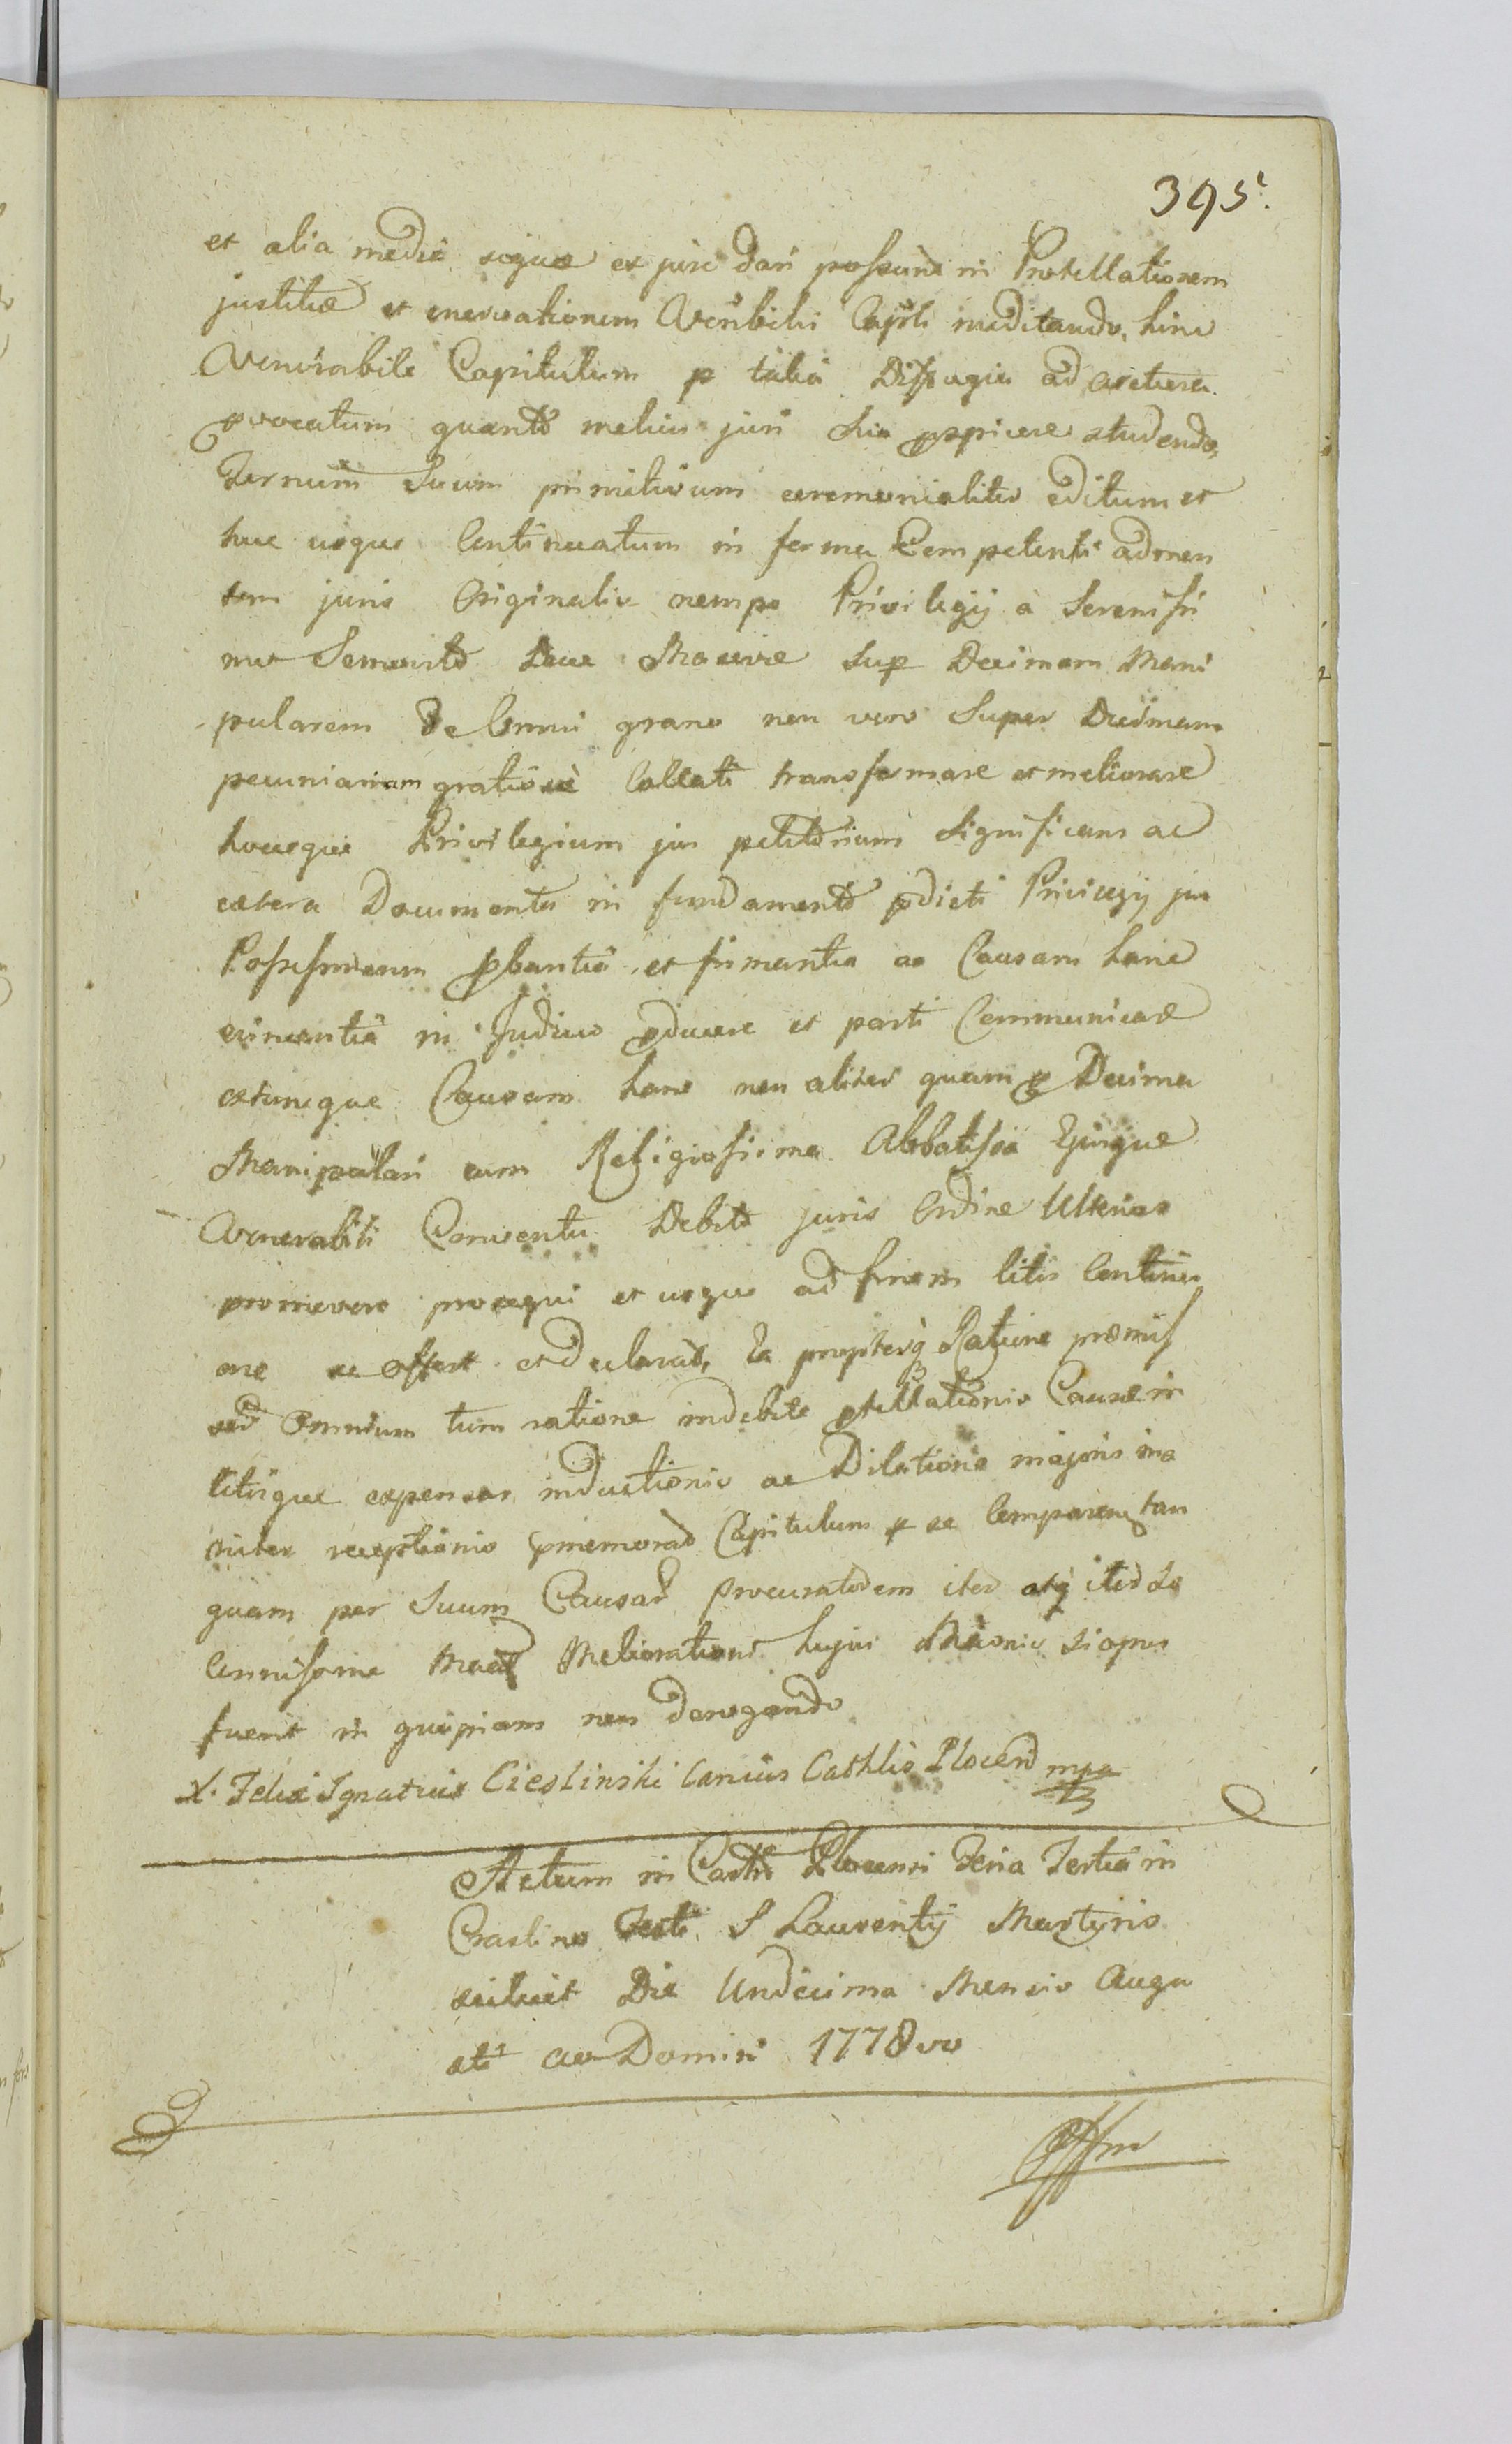 395.
et alia media eoque ex jure dari possunt in Protellationem
justitiæ et enervationem Venrbilis Capituli meditando, hinc
Venerabile Capitulum p talia Diffugia ad
pvocatum quanto melius juri suo pspicere studendo,
Terminum suum primitivum ceremonialiter editum et
huc usque Continuatum in forma Competenti ad men
tem juris Originalis nempe Privilegij a Serenissi
mo Semovito Duce Masoviæ sup Decimam Mani
pularem de Omni grano non vero super Decimam
pecuniariam gratiose Collati transformare et meliorare
hocque Privilegium jus petitorium significans ac
cætera Documenta in fundamento pdicti Privilegij jus
Possessorium pbantia et firmantia ac Causam hanc
evincentia in Judicio pducere et parti Communicare
Causam hanc non aliter quam p Decima
Manipulari cum Religiosissima Abbatissa Ejusque
Venerabili Conventu Debito juris Ordine Ulterius
promovere prosequi et usque ad finem litis Continu
are se offert et declarat, Ea propterq Ratione præmis
sor Omnium tum ratione indebitæ ptellationis Causæ in
litisque expensas inductionis ac Dilationis majoris ina
niter receptionis pmemorat Capitulum p se Comparens tan
quam per suum Causar Procuratorem iter atq iter so
lennissime Meliorationi hujus Mtionis si opus
fuerit in quopiam non derogando
X. Felix Ignatius Ciesliński Canius Cathlis Plocen mpa
Actum in Castro Plocensi Feria Tertia in
Crastino Festi S Laurentij Martyris
scilicet Die Undecima Mensis Augu
sti Ao Domini 1778vo